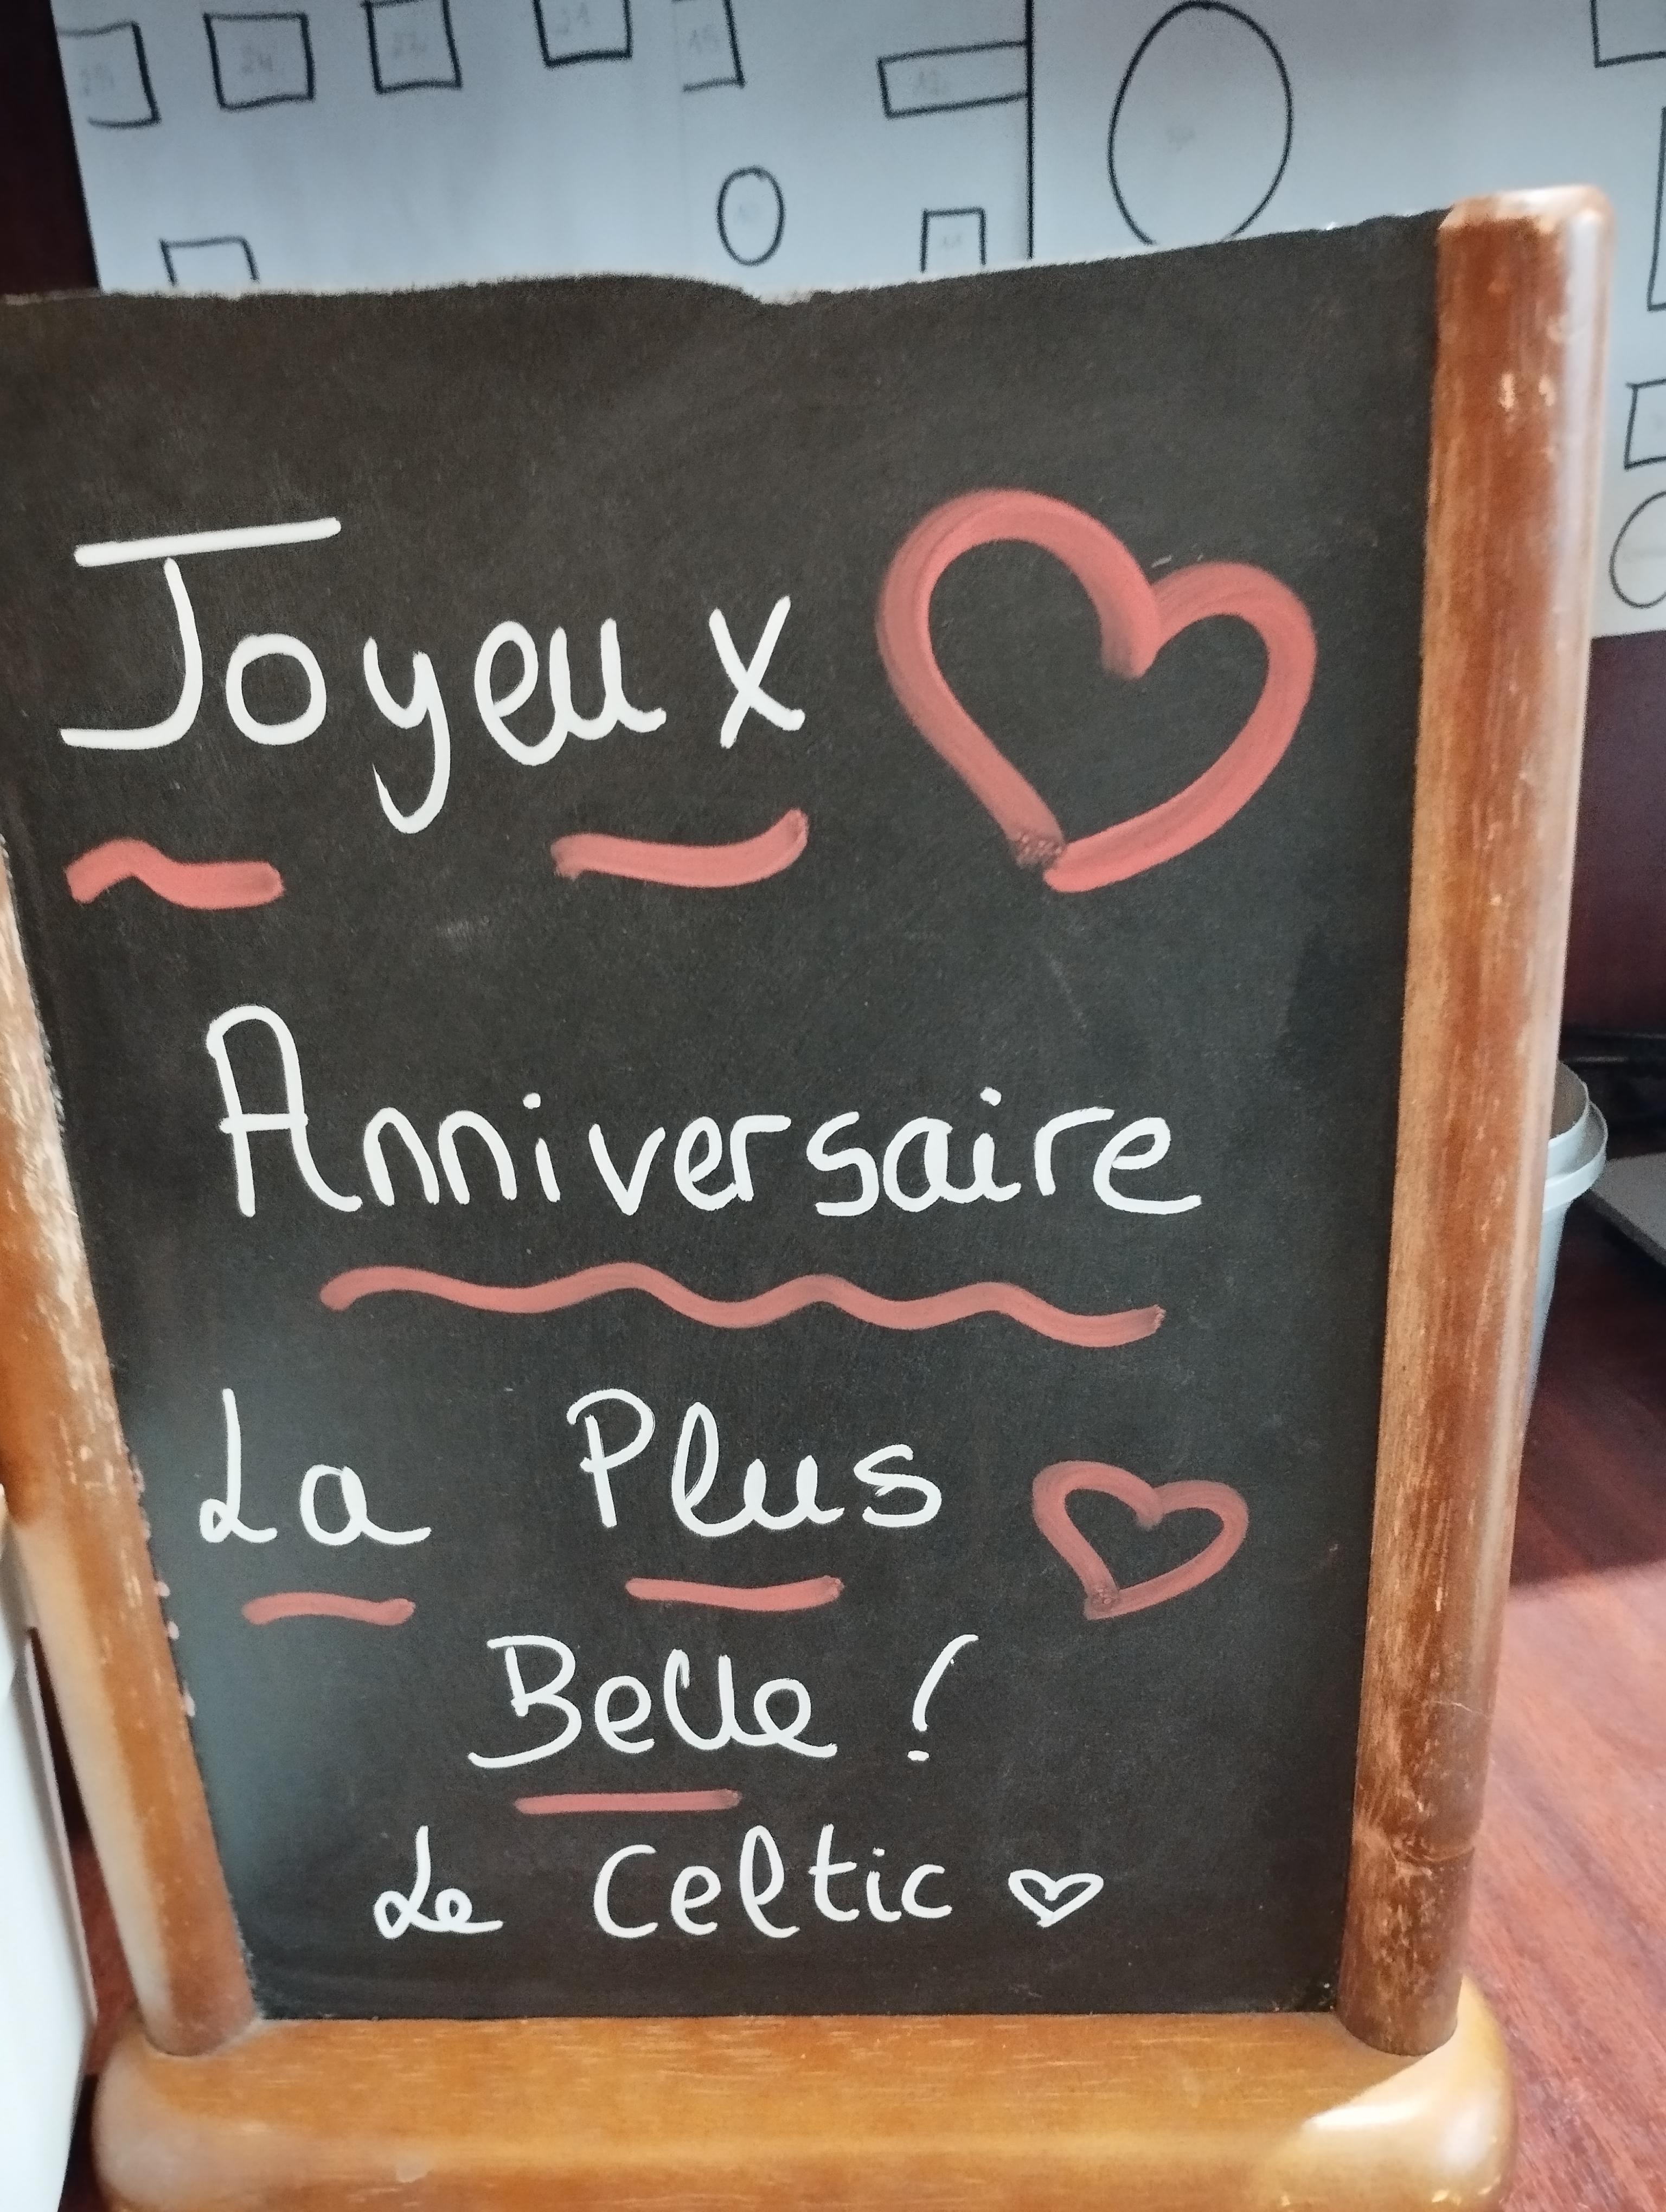 Joyeux
Anniversaire
La Plus
Belle !
Le Celtic